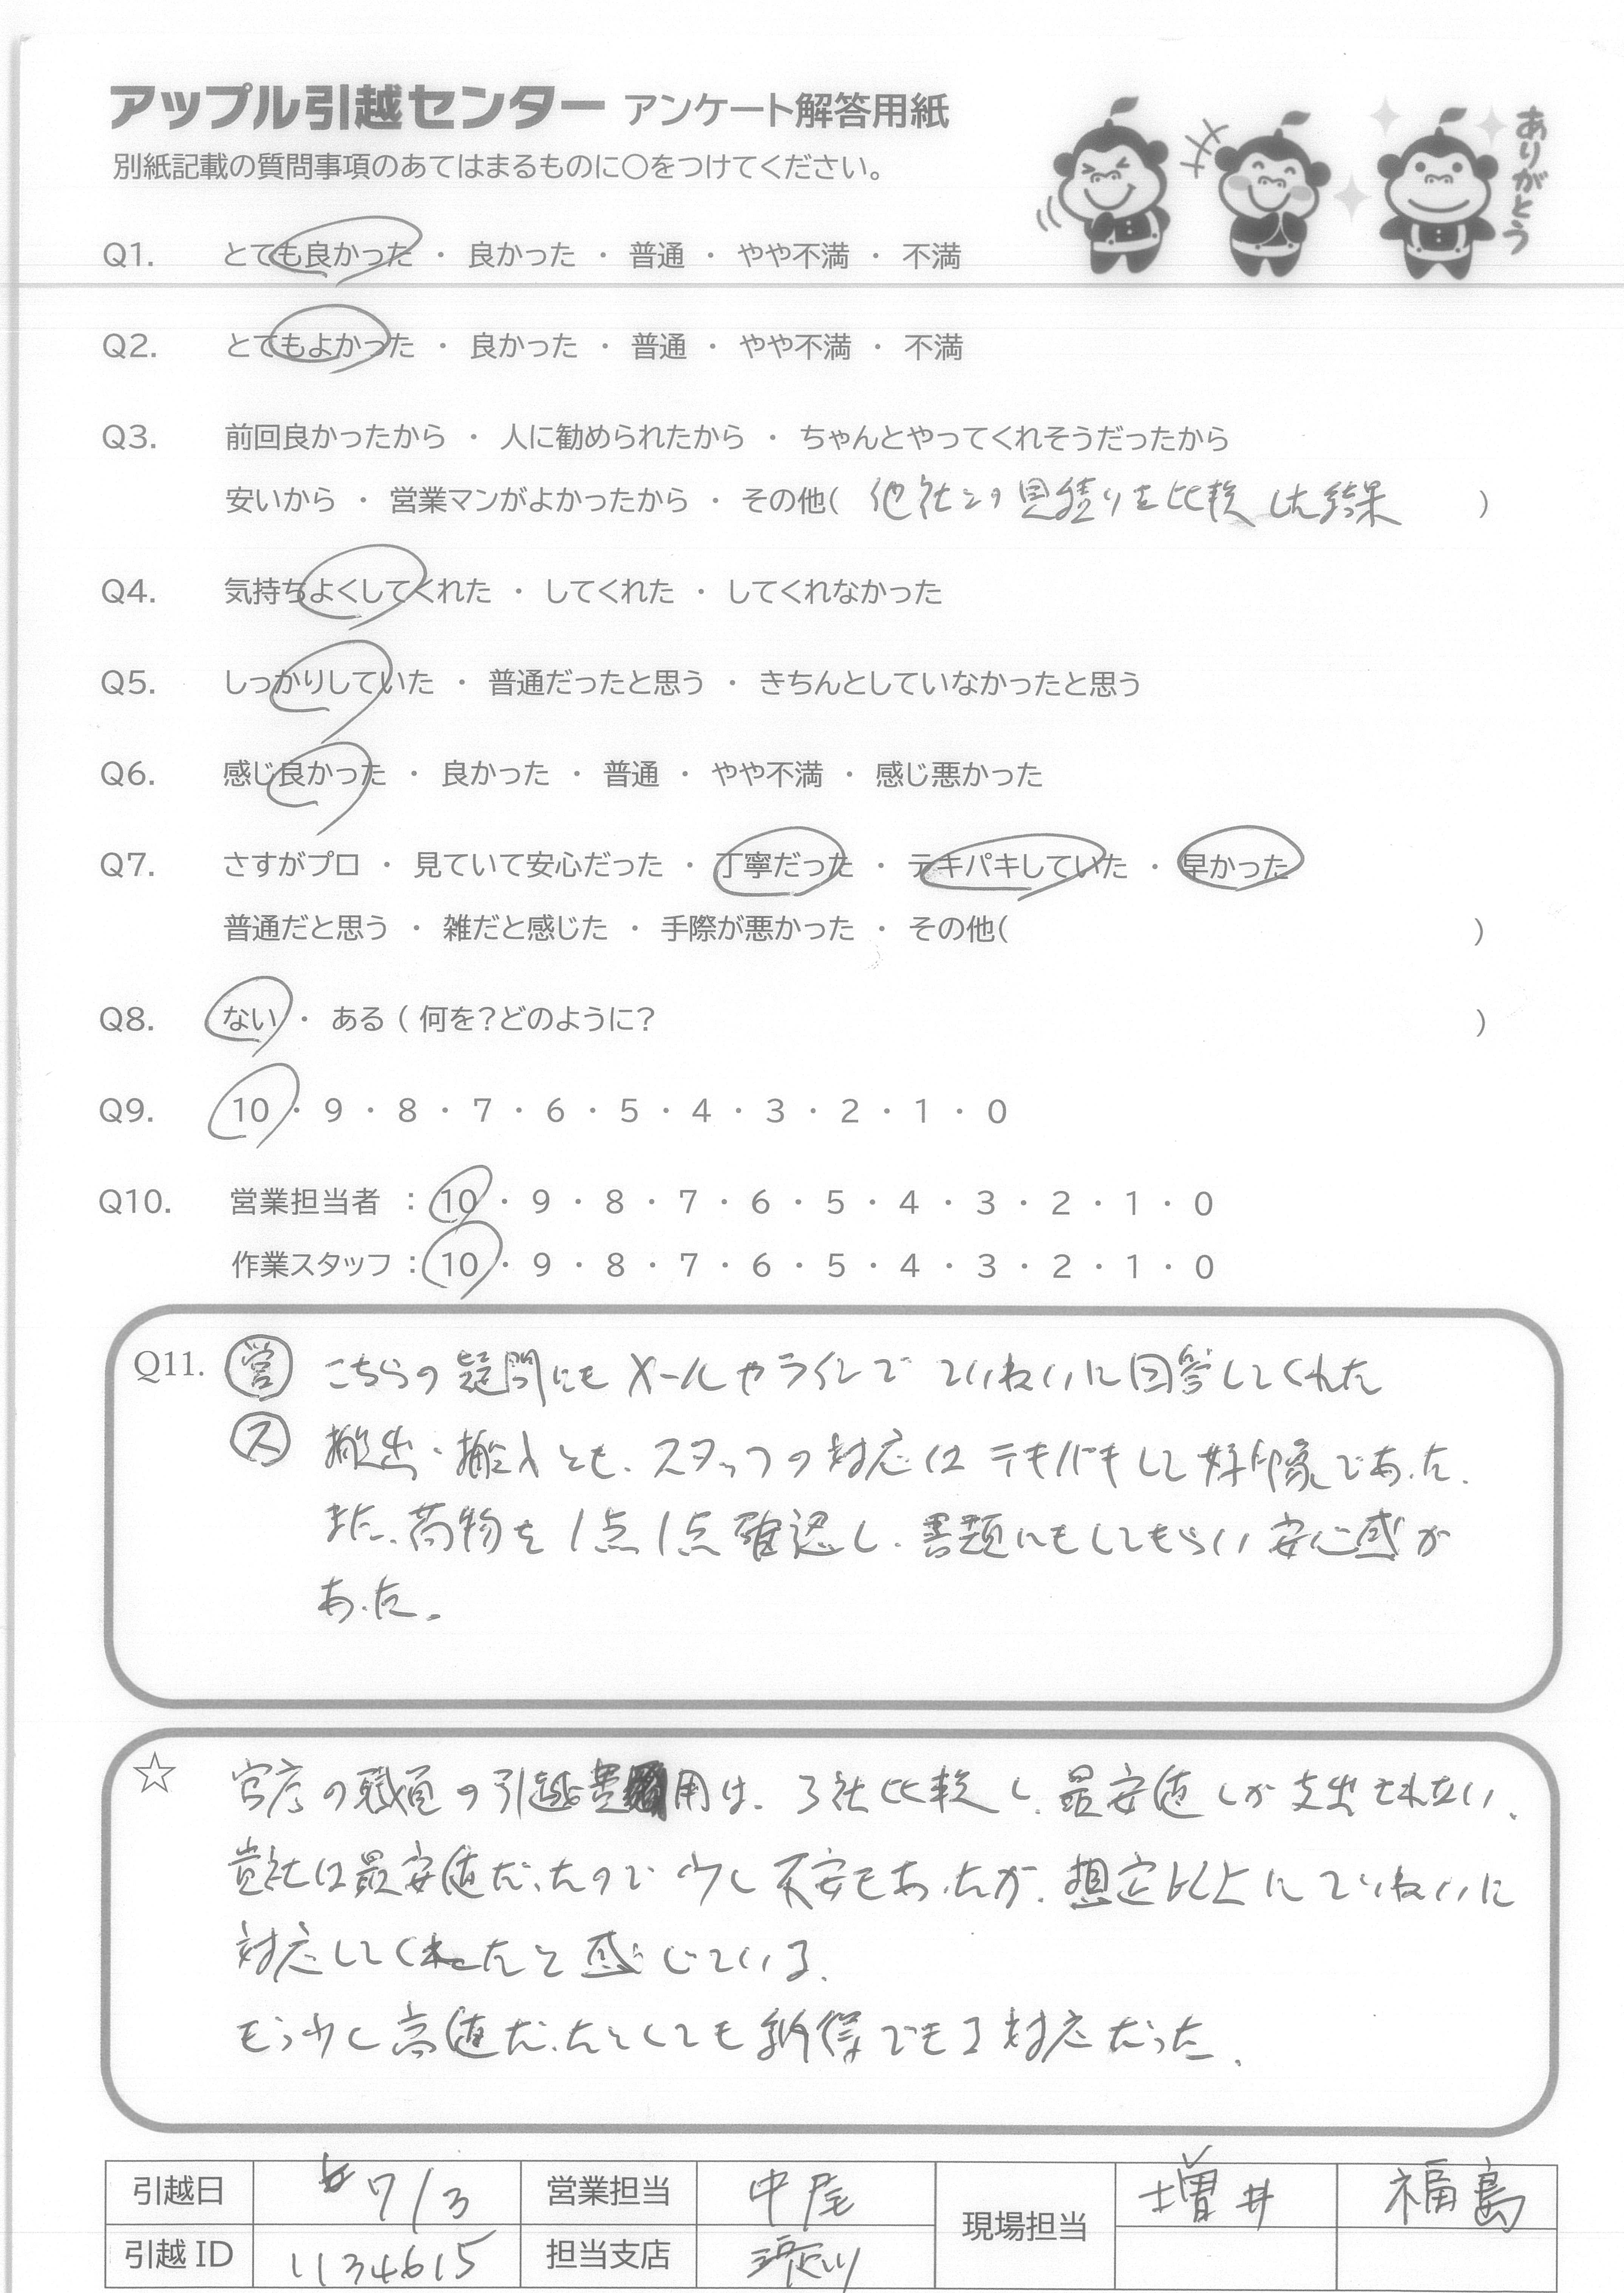 アップル引越センター アンケート解答用紙
別紙記載の質問事項のあてはまるものに〇をつけてください。
ありがとう
Q1. とても良かった ・ 良かった ・ 普通 ・ やや不満 ・ 不満
Q2. とてもよかった ・ 良かった ・ 普通 ・ やや不満 ・ 不満
Q3. 前回良かったから ・ 人に勧められたから ・ ちゃんとやってくれそうだったから
安いから ・ 営業マンがよかったから ・ その他( 他社との見積りを比較した結果 )
Q4. 気持ちよくしてくれた ・ してくれた ・ してくれなかった
Q5. しっかりしていた ・ 普通だったと思う ・ きちんとしていなかったと思う
Q6. 感じ良かった ・ 良かった ・ 普通 ・ やや不満 ・ 感じ悪かった
Q7. さすがプロ ・ 見ていて安心だった ・ 丁寧だった ・ テキパキしていた ・ 早かった
普通だと思う ・ 雑だと感じた ・ 手際が悪かった ・ その他( )
Q8. ない ・ ある ( 何を?どのように? )
Q9. 10 ・ 9 ・ 8 ・ 7 ・ 6 ・ 5 ・ 4 ・ 3 ・ 2 ・ 1 ・ 0
Q10. 営業担当者 : 10 ・ 9 ・ 8 ・ 7 ・ 6 ・ 5 ・ 4 ・ 3 ・ 2 ・ 1 ・ 0
作業スタッフ : 10 ・ 9 ・ 8 ・ 7 ・ 6 ・ 5 ・ 4 ・ 3 ・ 2 ・ 1 ・ 0
Q11. 営 こちらの疑問にもメールやラインでていねいに回答してくれた
ス 搬出・搬入とも、スタッフの対応はテキパキして好印象であった。
また、荷物を1点1点確認し、にもしてもらい安心感が
あった。
☆ 官庁の職員の引越費用は、3社比較し、最安値しか支出されない。
貴社は最安値だったので少し不安もあったが、想定以上にていねいに
対応してくれたと感じている。
もう少し高値だったとしても納得できる対応だった。
引越日 7/3 営業担当 中尾 現場担当 増井 福島
引越ID 1134615 担当支店